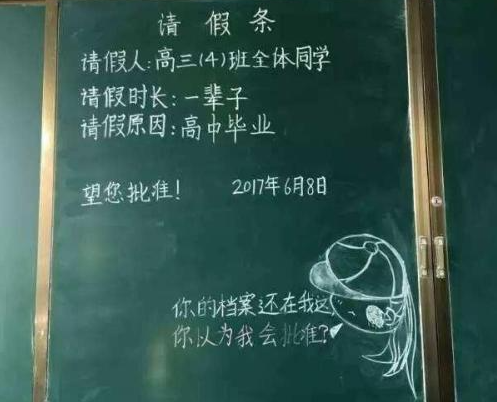 请假条
请假人:高三(4)班全体同学
请假时长:一辈子
请假原因:高中毕业
望您批准! 2017年6月8日
你的档案还在我这
你以为我会批准?